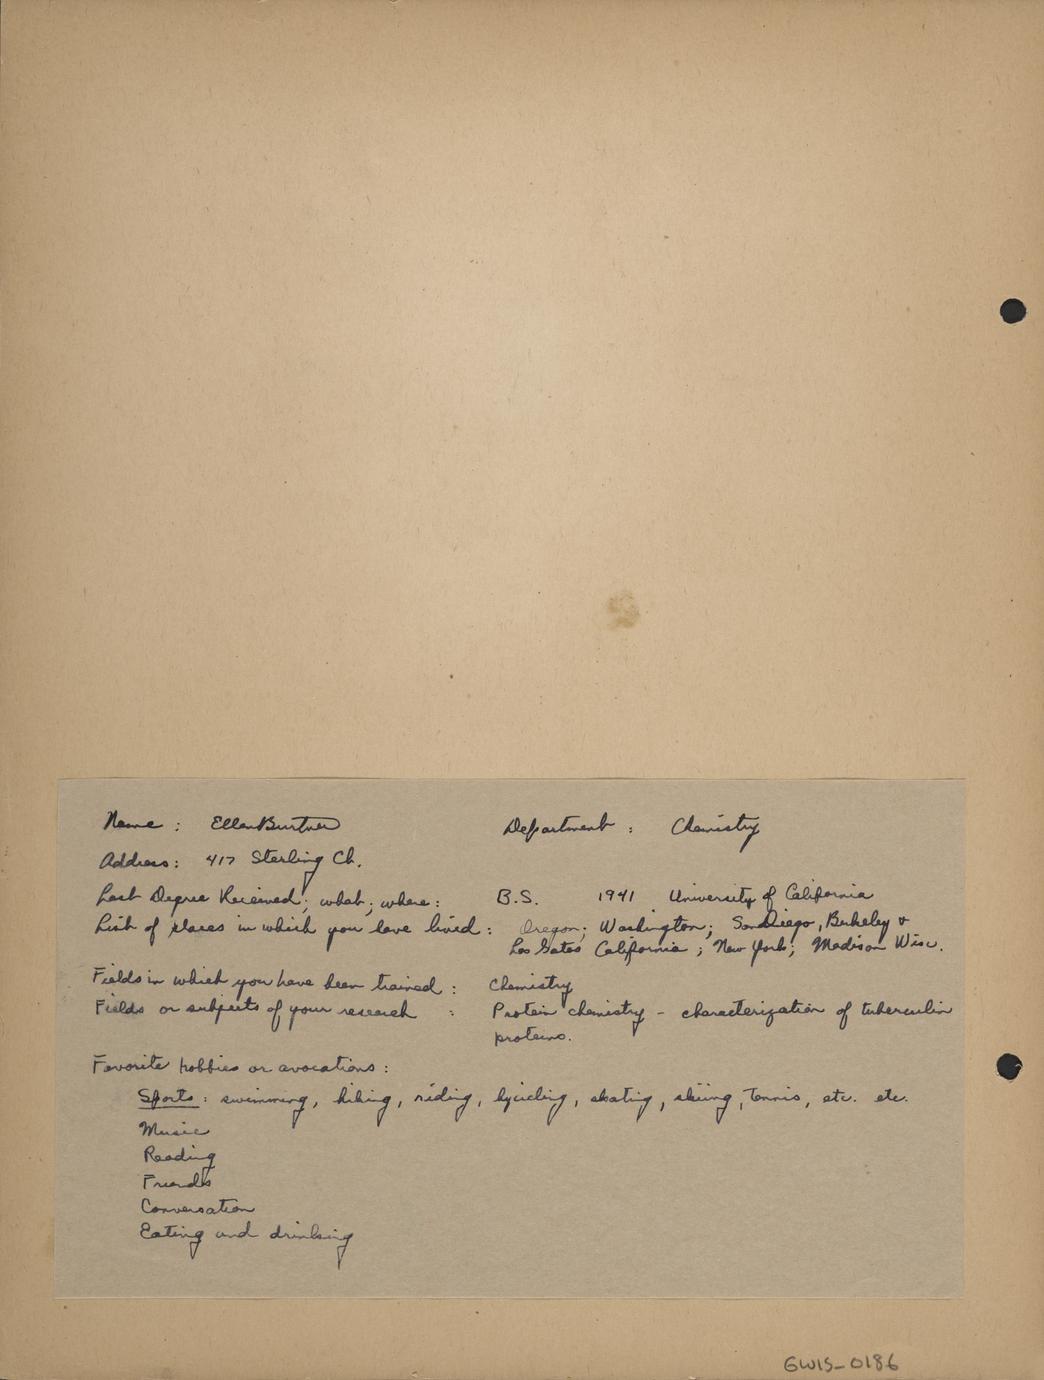 Name : Ellen Burtner Department : Chemistry
Address : 417 Sterling Ct.
Last Degree Received; what; where : B.S. 1941 University of California
List of places in which you have lived : Oregon; Washington; San Diego, Berkeley &
Los Gatos California ; New York; Madison Wisc.
Fields in which you have been trained : Chemistry
Fields or subjects of your research : Protein chemistry - characterization of tuberculin
proteins.
Favorite hobbies or avocations :
Sports : swimming, hiking, riding, bycicling, skating, skiing, Tennis, etc. etc.
Music
Reading
Friends
Conversation
Eating and drinking
GWIS-0186